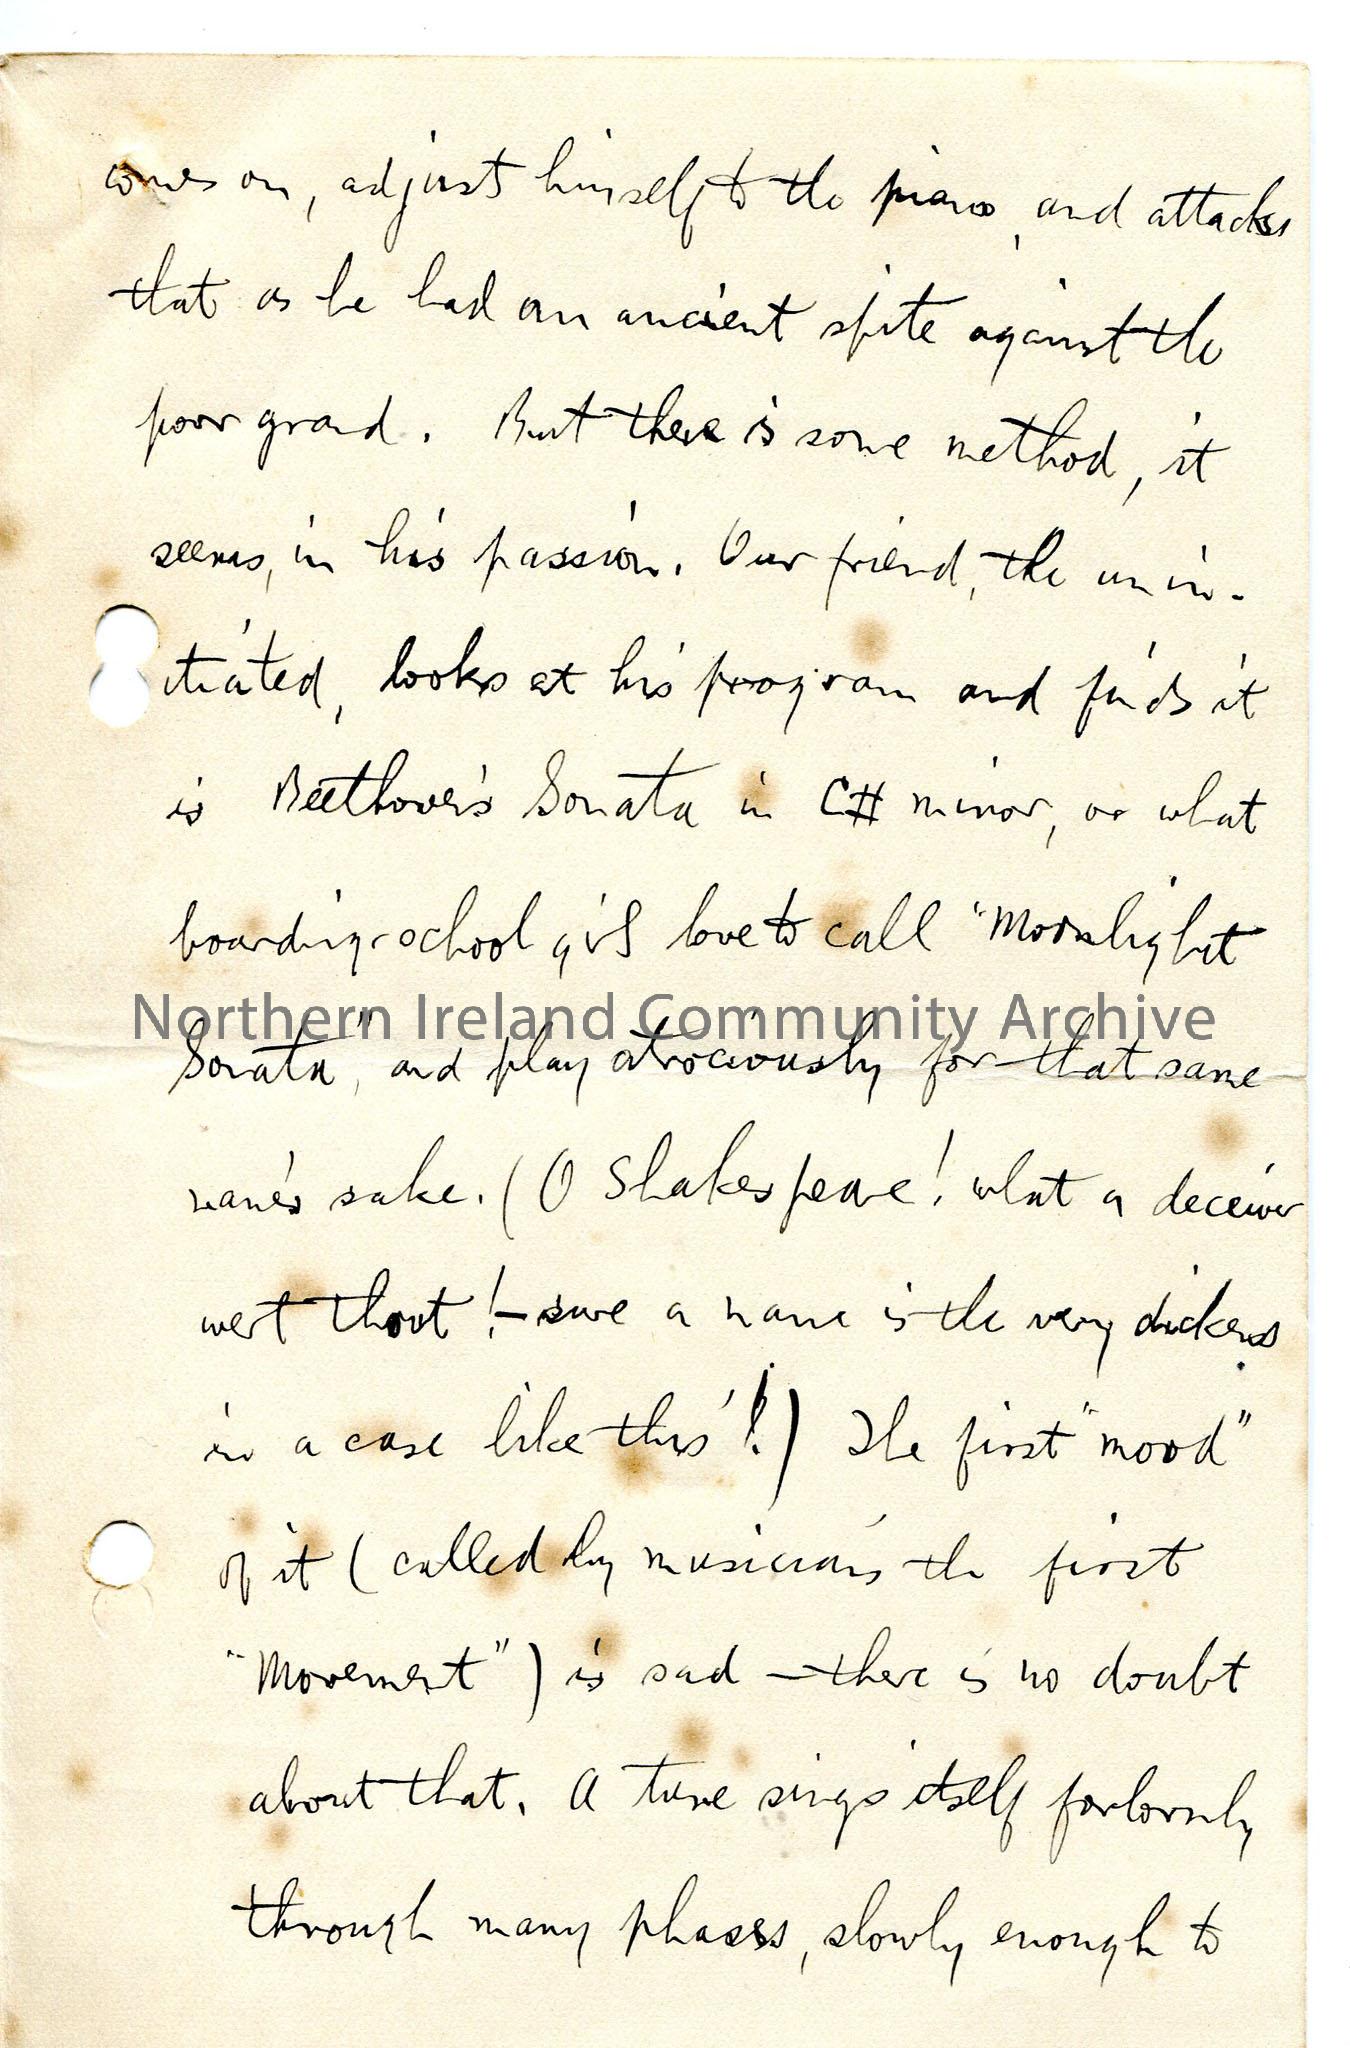 comes on, adjusts himself to the piano, and attacks
that as he had an ancient spite against the
poor grand. But there is some method, it
seems, in his passion. Our friend, the unin-
itiated, looks at his program and finds it
is Beethoven's Sonata in C# minor, or what
boarding-school girls love to call "Moonlight
Northern Ireland Community Archive
Sonata", and play atrociously for that same
name's sake. (O Shakespeare! what a deceiver
wert thout! – sure a name is the very dickens
in a case like this!) The first "mood"
of it (called by musicians the first
"Movement") is sad – there is no doubt
about that. A tune sings itself forlornly
through many phases, slowly enough to